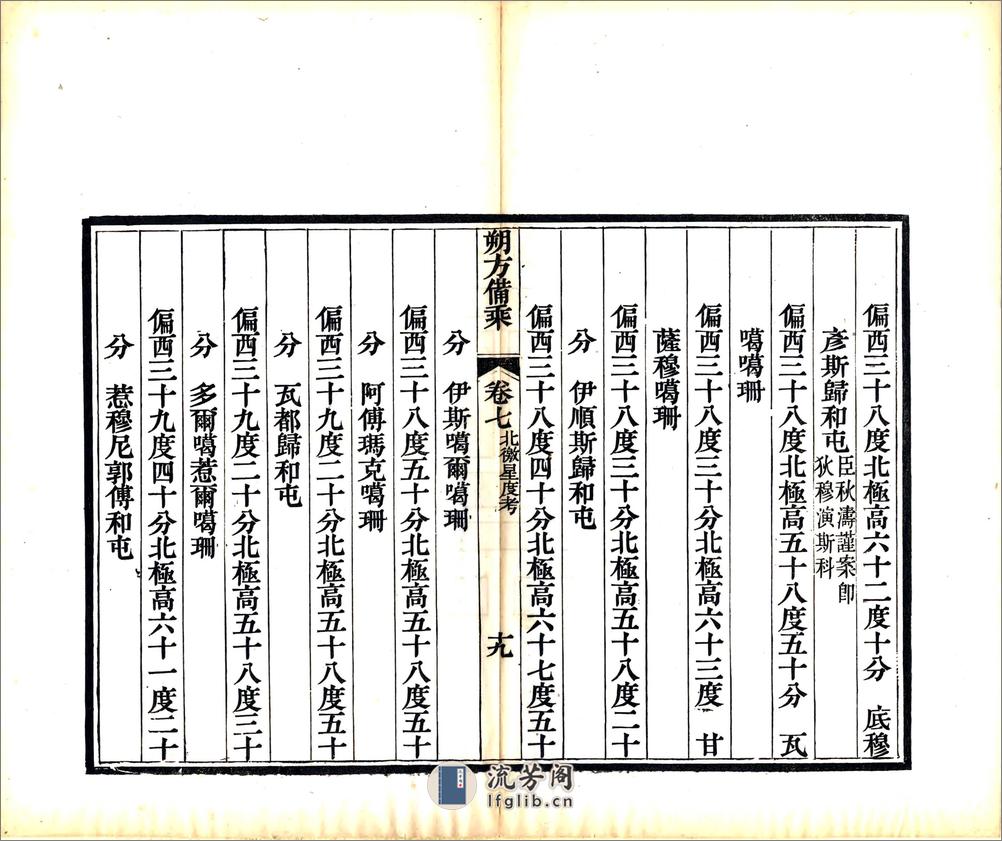 偏西三十八度北極高六十二度十分　底穆
彥斯歸和屯 臣秋濤謹案即
狄穆演斯科
偏西三十八度北極高五十八度五十分　瓦
噶噶珊
偏西三十八度二十分北極高六十三度　甘
薩穆噶珊
偏西三十八度三十分北極高五十八度二十
分　伊順斯歸和屯
偏西三十八度四十分北極高六十七度五十
朔方備乘 卷七 北徼星度考 十九
分　伊斯噶爾噶珊
偏西三十八度五十分北極高五十八度五十
分　阿傅瑪克噶珊
偏西三十九度二十分北極高五十八度五十
分　瓦都歸和屯
偏西三十九度二十分北極高五十八度三十
分　多爾噶惹爾噶珊
偏西三十九度四十分北極高六十一度二十
分　惹穆尼郭傅和屯
流芳阁
lfglib.cn